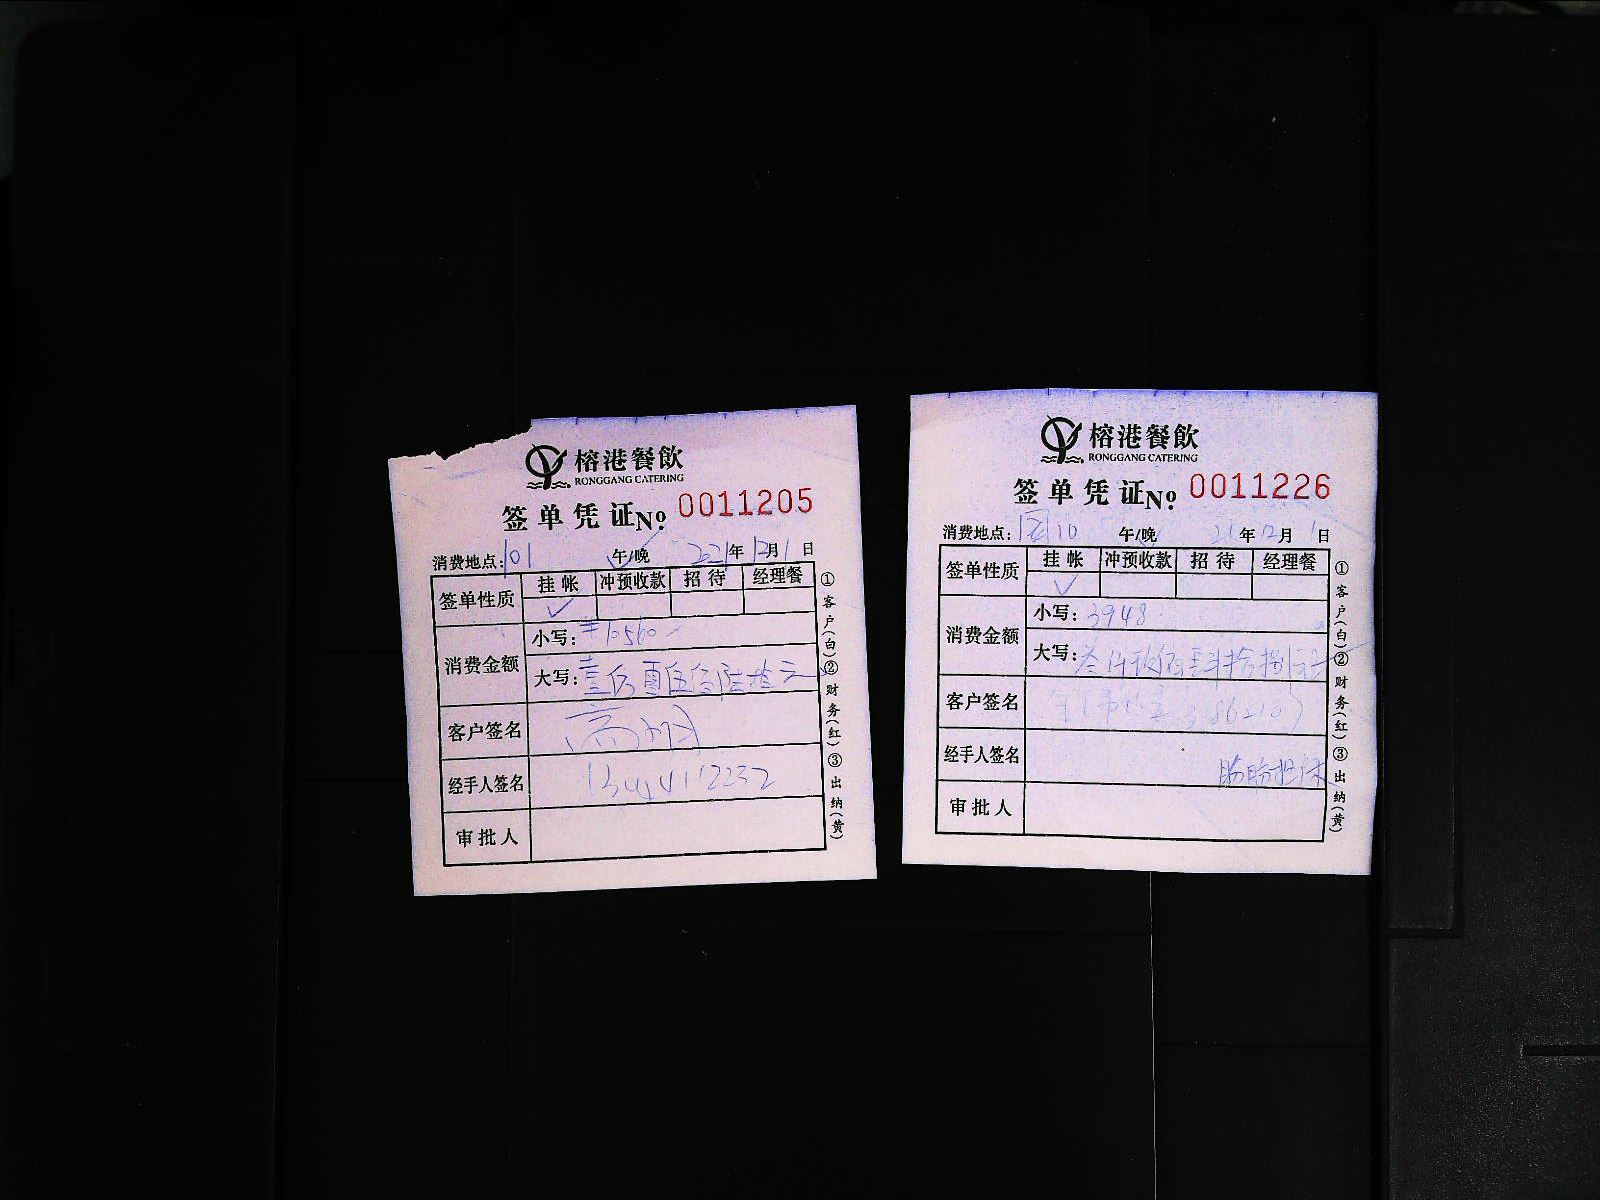 榕港餐飲
RONGGANG CATERING
签单凭证No. 0011205
消费地点: 101 午/晚 2021年12月1日
签单性质 挂帐 冲预收款 招待 经理餐
消费金额 小写: ¥10560
大写:
客户签名
经手人签名 13444112232
审批人
①客户(白)②财务(红)③出纳(黄)
榕港餐飲
RONGGANG CATERING
签单凭证No. 0011226
消费地点: 10 午/晚 21年12月1日
签单性质 挂帐 冲预收款 招待 经理餐
消费金额 小写: 3948
大写: 叁仟玖佰肆拾捌元
客户签名
经手人签名
审批人
①客户(白)②财务(红)③出纳(黄)